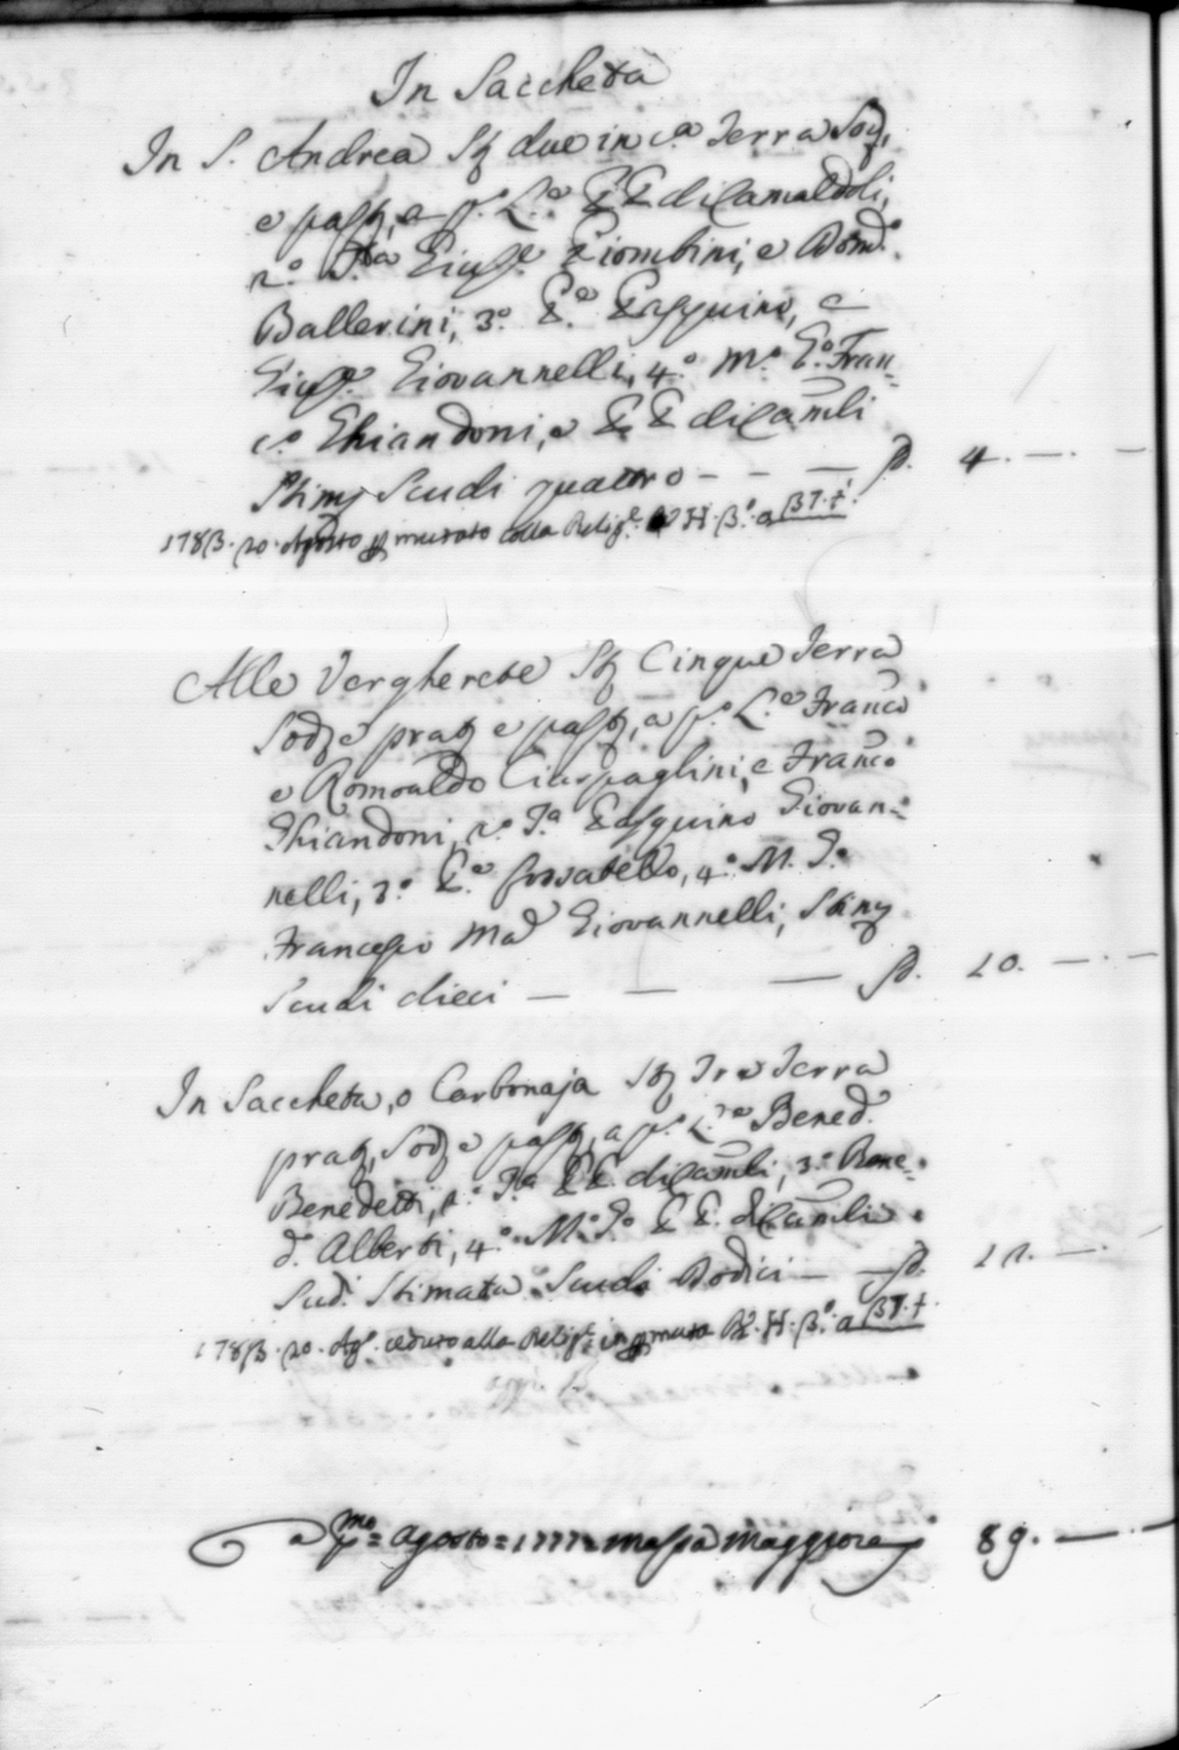 In Saccheta
In S. Andrea St due in c.a Terra Sod,
e past, a p.o L.o PP di Camaldoli,
2.o T.a Gius.e Giombini, e Dom.o
Ballerini, 3.o P.o Pasquino, e
Gius.e Giovannelli, 4.o M.o G.o Fran=
c.o Ghiandoni, e PP di Camli
Stim Scudi quattro - - — S. 4. — . —
1783. 20. Agosto permutato colla Relig.e H. 3.o a 37. t.
Alle Vergherete St Cinque Terra
Sod e prat e past, a p.o L.o Franco
e Romoaldo Ciaspaglini, e Franco
Ghiandoni, 2.o T.a Pasquino Giovan=
nelli, 3.o P.o fossatello, 4.o M. T.o
Francesco Ma Giovannelli, Stim
Scudi dieci — — — S. 10. — . —
In Saccheta, o Carbonaja St Tre Terra
prat, Sod e past, a p.o L.o Bened.
Benedetti, 2.o T.a PP. di Camli, 3.o Bene=
d. Alberti, 4.o M.o T.o PP. di Camli
Sud. Stimata Scudi Dodici — — S. 12. — .
1783. 20. Ag.o ceduto alla Relig.e in permuta H. 3.o a 37. t.
a p.mo = agosto = 1777 = massa maggiore 89. — . —